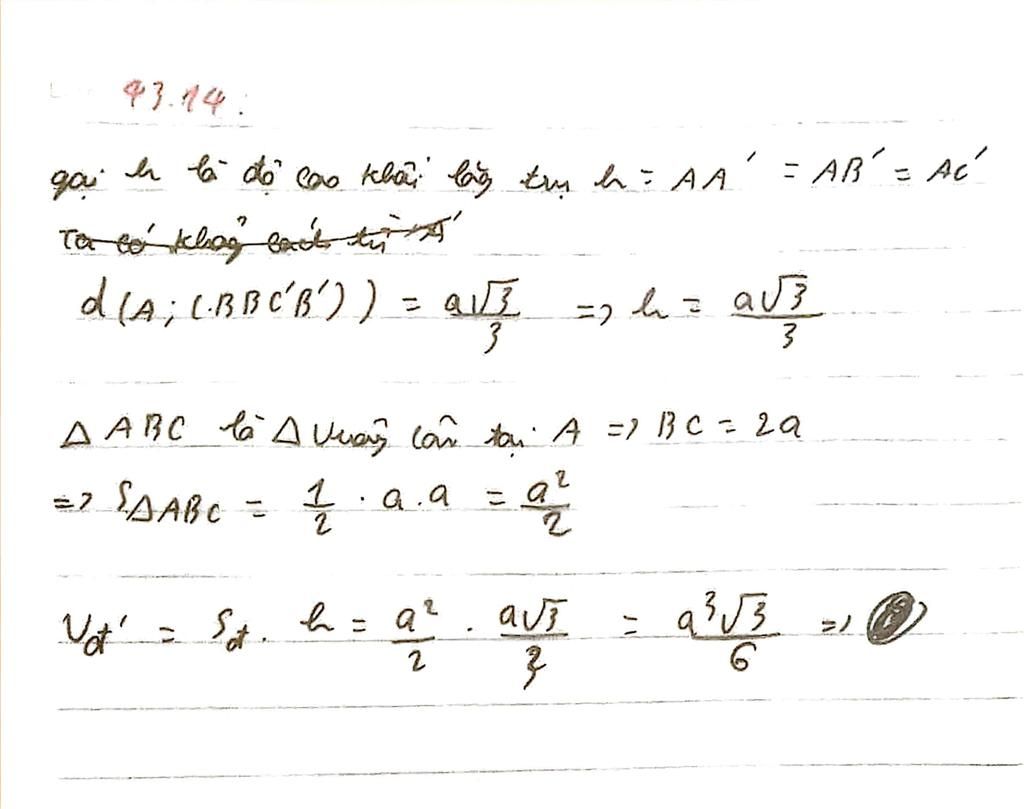 43.14:
gọi h là độ cao khối lăng trụ h = AA' = AB' = AC'
Ta có khoảng cách từ A'
d(A; (.BBC'B')) = a√3/3 => h = a√3/3
Δ ABC là Δ vuông cân tại A => BC = 2a
=> SΔABC = 1/2 . a.a = a²/2
Vlt' = Slt. h = a²/2 . a√3/3 = a³√3/6 =>